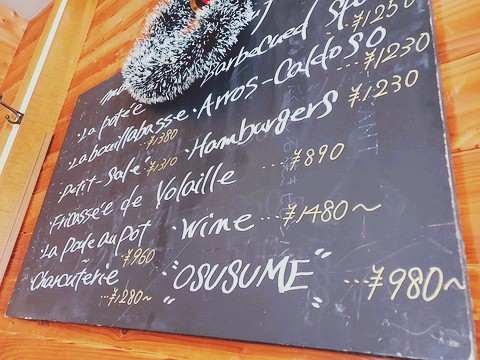 Barbecued Sp
¥1250
·La potée
·La bouillabasse
··¥1380
·Arros-Caldoso
··¥1230
·Petit-Salé
··¥1310
·Hamburgers
¥1230
·Fricassée de Volaille
···¥890
·La Poule au Pot
··¥960
·Wine ···¥1480~
·Charcuterie
···¥1280~
·"OSUSUME" ···¥980~